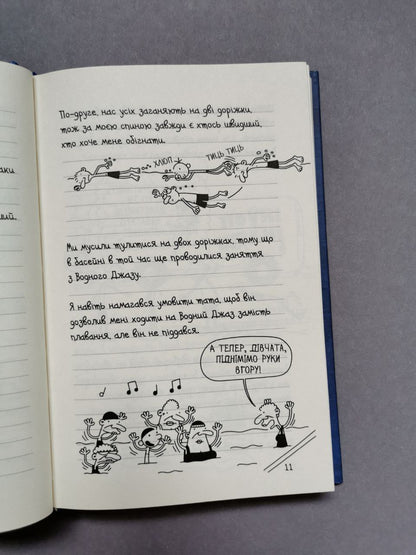 аки
ший.
По-друге, нас усіх заганяють на дві доріжки,
тож за моєю спиною завжди є хтось швидший,
хто хоче мене обігнати.
ХЛЮП
ТИЦЬ ТИЦЬ
Ми мусили тулитися на двох доріжках, тому що
в басейні в той час ще проводилися заняття
з Водного Джазу.
Я навіть намагався умовити тата, щоб він
дозволив мені ходити на Водний Джаз замість
плавання, але він не піддався.
А ТЕПЕР, ДІВЧАТА,
ПІДНІМІМО РУКИ
ВГОРУ!
11